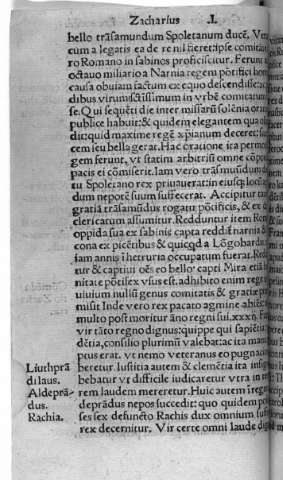 Zacharius .I.
bello trãsamundum Spoletanum ducẽ. Ver
cum a legatis ea de re nil fieret: ipse comitio
ro Romano in sabinos proficiscitur. Ferunt
octauo miliario a Narnia regem põtifici hon
causa obuiam factum ex equo descendisse:
dibus virum sctissimum in vrbẽ comitatum
se. Qui sequẽti die inter missarũ solẽnia or
publice habuit: & quidem elegantem qua
dit: quid maxime regẽ xpianum deceret:
cem seu bella gerat. Hac oratione ita permo
gem ferunt, vt statim arbitriũ omne cõpo
pacis ei cõmiserit. Iam vero trãsmũdũ
tu Spolerano rex priuauerat: in eiusq; loc
dum nepotẽ suum suffecerat. Accipitur
gratiã trãsamũdus rogatu põtificis, & ex
clericatum assumitur. Redduntur item Rom
oppida sua ex sabinis capta reddit narnia &
cona ex picẽtibus & quicqd a Lõgobard
sam annis i hetruria occupatum fuerat. Red
tur & captiui oẽs eo bello capti Mira etiã
nitate põtifex vsus est. adhibito enim rege
uiuium nullũ genus comitatis & gratie
misit Inde vero rex pacato agmine abiẽs
multo post moritur ãno regni sui. xxxii.
vir tãto regno dignus: quippe qui sapiẽtia
dẽtia, consilio plurimũ valebat: ac ita man
ptus erat. vt nemo veteranus eo pugnac
Liuthprã beretur. Iustitia autem & clemẽtia ita insig
di laus. bebatur vt difficile iudicaretur vtra in
Aldeprã- rem laudem mereretur. Huic autem ĩ rege
dus. deprãdus nepos succedit: quo quidem po
Rachia. ses sex defuncto Rachis dux omnium su
rex decernitur. Vir certe omni laude dig